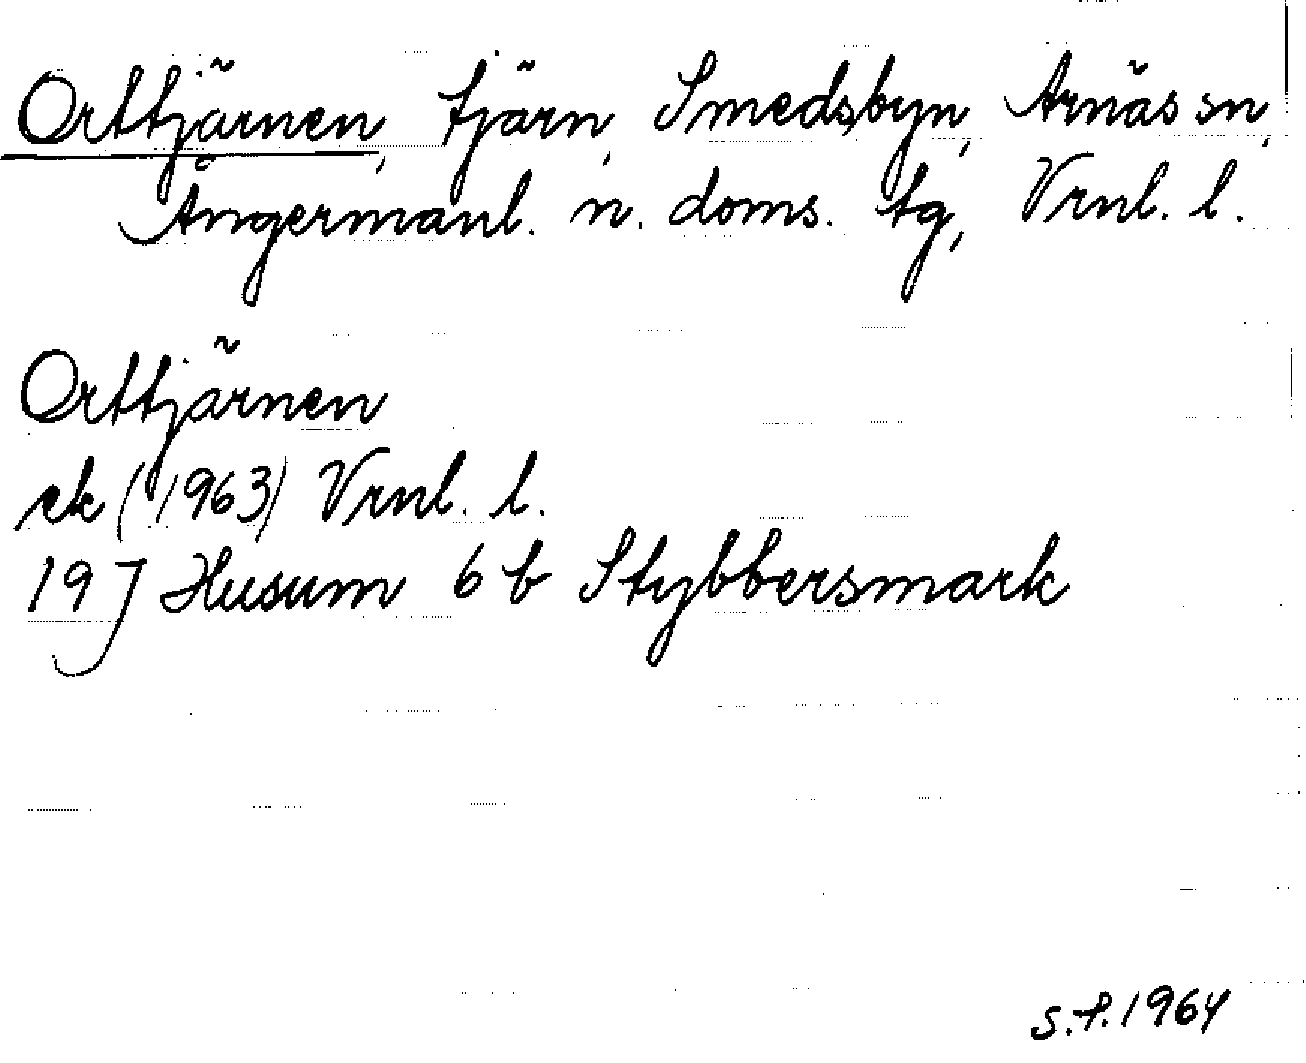 Orttjärnen, tjärn, Smedsbyn, Arnäs sn,
Ångermanl. n. doms. tg, Vrnl. l.
Orttjärnen
ek (1963) Vrnl. l.
19 J Husum 6 b Stybbersmark
S.F. 1964